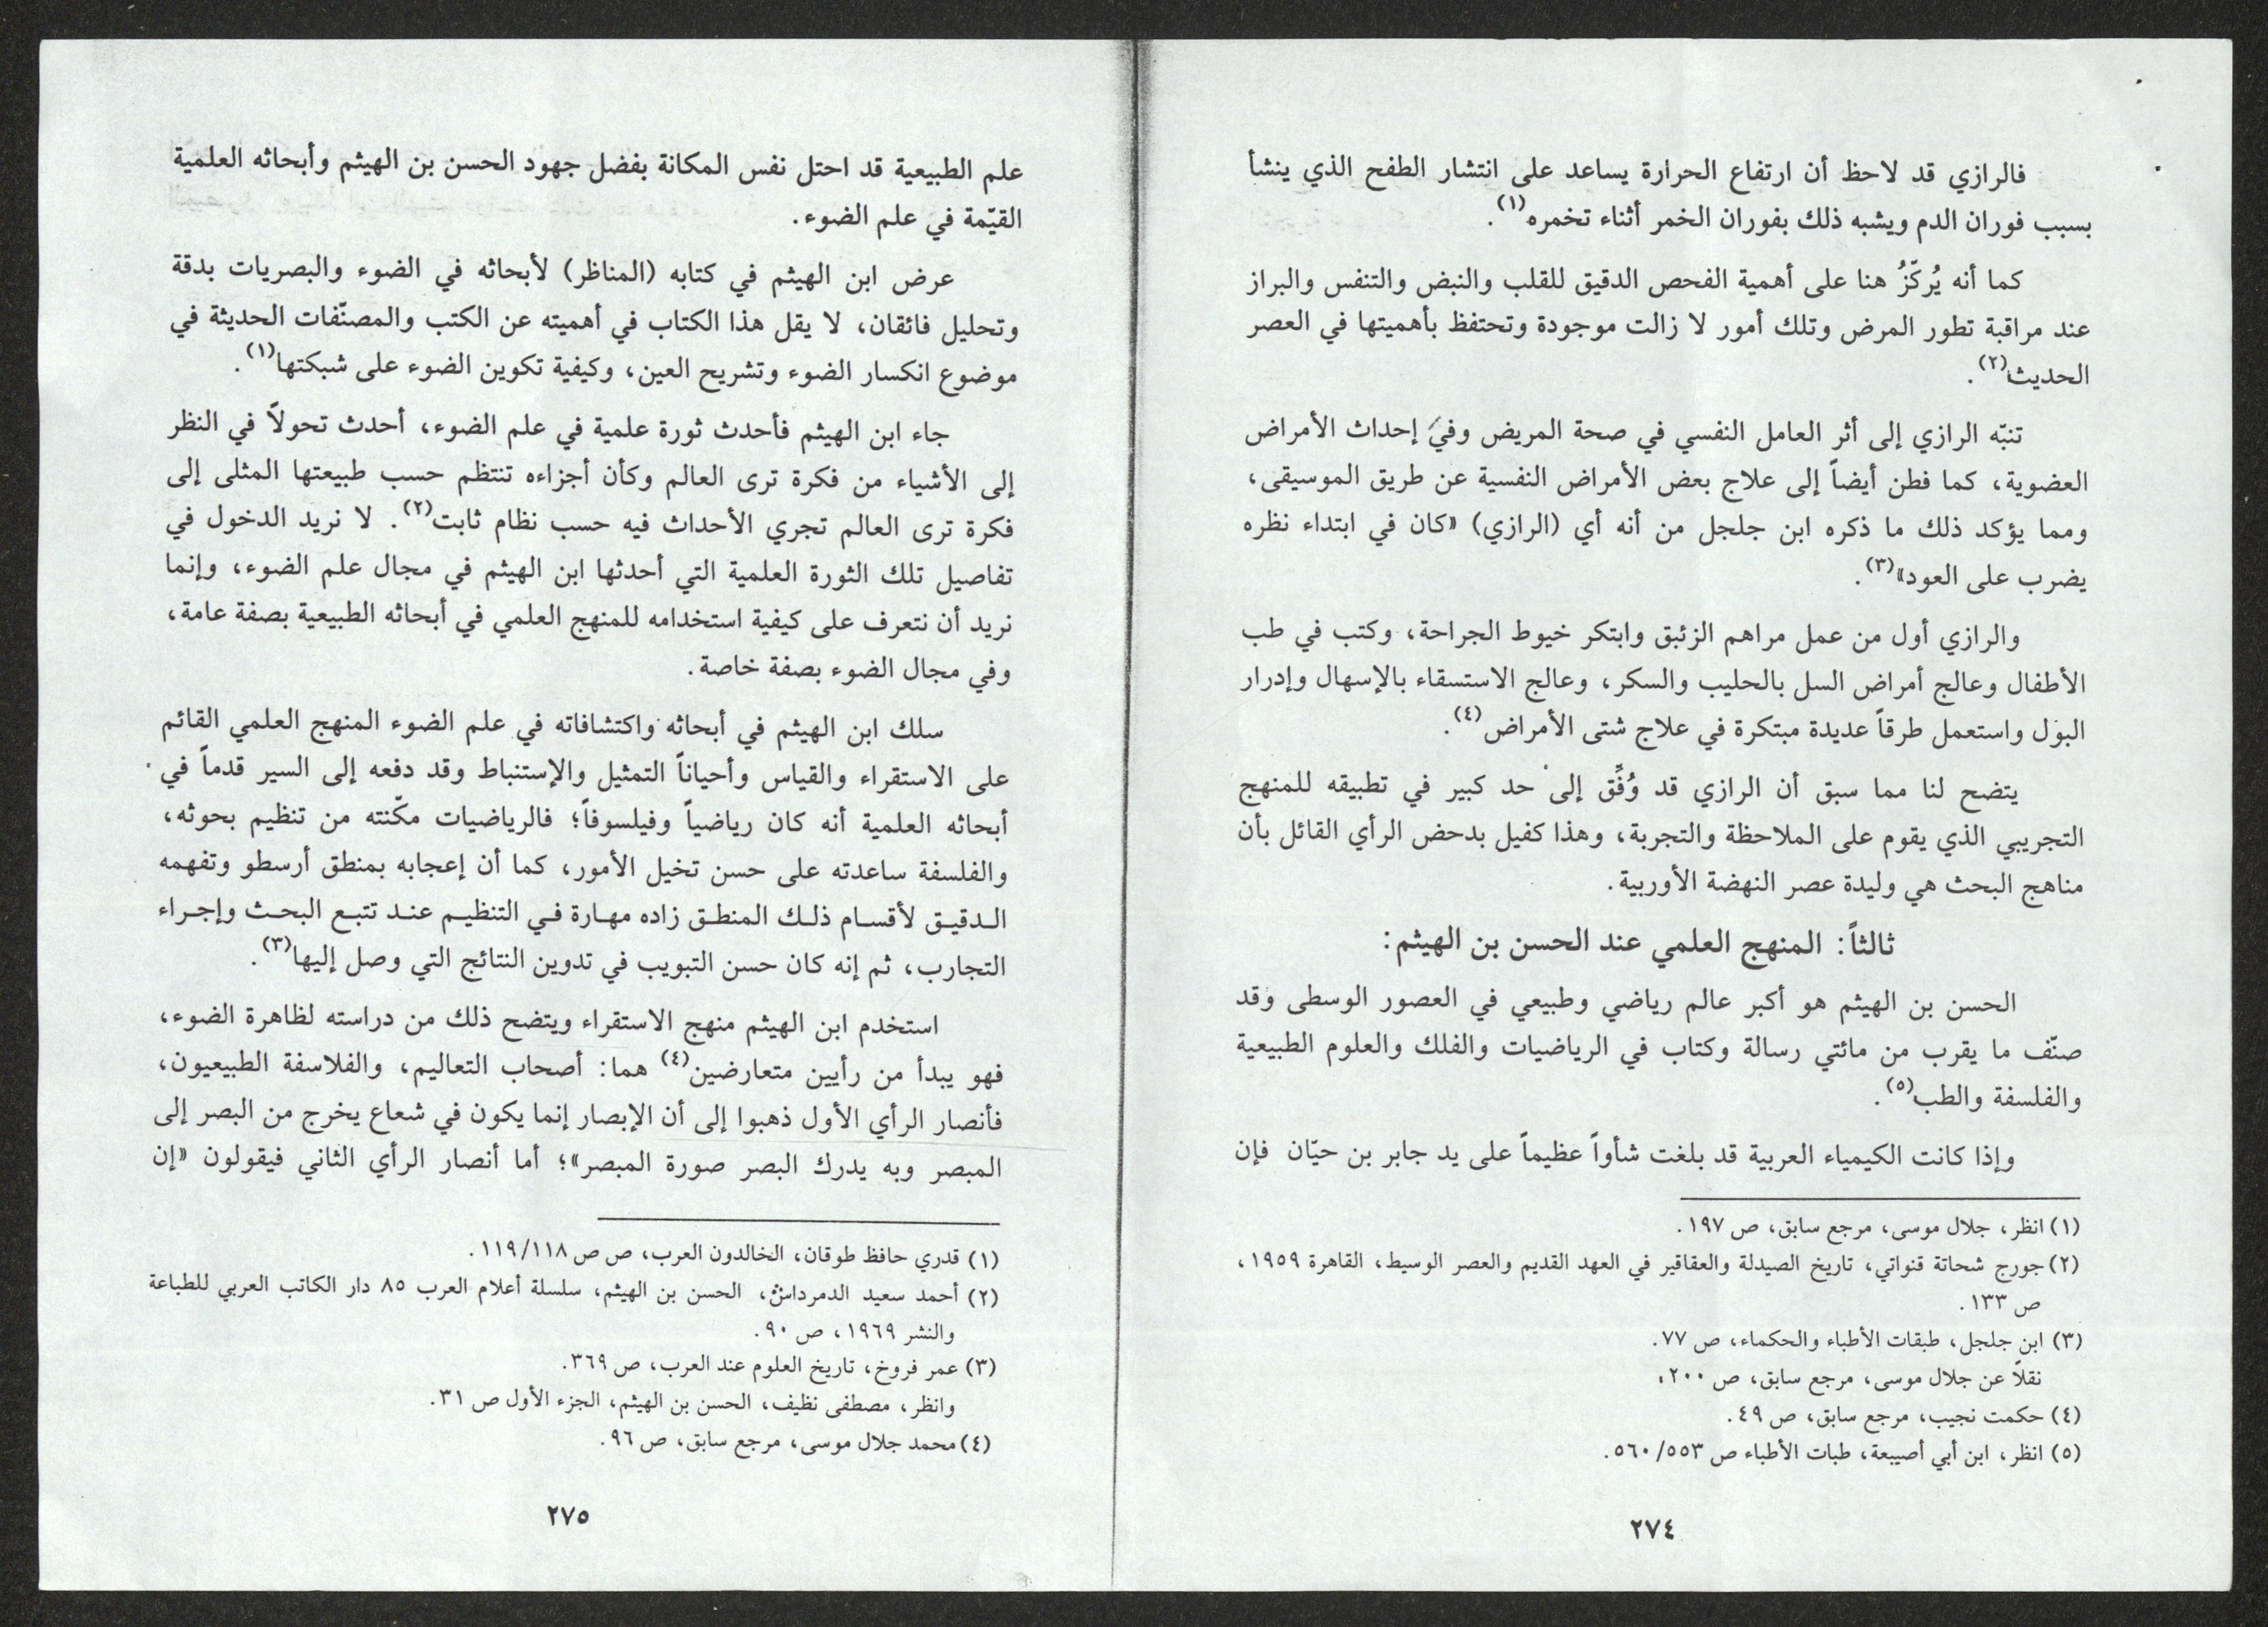 فالرازي قد لاحظ أن ارتفاع الحرارة يساعد على انتشار الطفح الذي ينشأ
بسبب فوران الدم ويشبه ذلك بفوران الخمر أثناء تخمره(١).
كما أنه يُركّزُ هنا على أهمية الفحص الدقيق للقلب والنبض والتنفس والبراز
عند مراقبة تطور المرض وتلك أمور لا زالت موجودة وتحتفظ بأهميتها في العصر
الحديث(٢).
تنبّه الرازي إلى أثر العامل النفسي في صحة المريض وفي إحداث الأمراض
العضوية، كما فطن أيضاً إلى علاج بعض الأمراض النفسية عن طريق الموسيقى،
ومما يؤكد ذلك ما ذكره ابن جلجل من أنه أي (الرازي) «كان في ابتداء نظره
يضرب على العود»(٣).
والرازي أول من عمل مراهم الزئبق وابتكر خيوط الجراحة، وكتب في طب
الأطفال وعالج أمراض السل بالحليب والسكر، وعالج الاستسقاء بالإسهال وإدرار
البول واستعمل طرقاً عديدة مبتكرة في علاج شتى الأمراض(٤).
يتضح لنا مما سبق أن الرازي قد وُفِّق إلى حد كبير في تطبيقه للمنهج
التجريبي الذي يقوم على الملاحظة والتجربة، وهذا كفيل بدحض الرأي القائل بأن
مناهج البحث هي وليدة عصر النهضة الأوربية.
ثالثاً: المنهج العلمي عند الحسن بن الهيثم:
الحسن بن الهيثم هو أكبر عالم رياضي وطبيعي في العصور الوسطى وقد
صنّف ما يقرب من مائتي رسالة وكتاب في الرياضيات والفلك والعلوم الطبيعية
والفلسفة والطب(٥).
وإذا كانت الكيمياء العربية قد بلغت شأواً عظيماً على يد جابر بن حيّان فإن
(١) انظر، جلال موسى، مرجع سابق، ص ١٩٧.
(٢) جورج شحاتة قنواتي، تاريخ الصيدلة والعقاقير في العهد القديم والعصر الوسيط، القاهرة ١٩٥٩،
ص ١٣٣.
(٣) ابن جلجل، طبقات الأطباء والحكماء، ص ٧٧.
نقلاً عن جلال موسى، مرجع سابق، ص ٢٠٠،
(٤) حكمت نجيب، مرجع سابق، ص ٤٩.
(٥) انظر، ابن أبي أصيبعة، طبات الأطباء ص ٥٥٣/٥٦٠.
٢٧٤
علم الطبيعية قد احتل نفس المكانة بفضل جهود الحسن بن الهيثم وأبحاثه العلمية
القيّمة في علم الضوء.
عرض ابن الهيثم في كتابه (المناظر) لأبحاثه في الضوء والبصريات بدقة
وتحليل فائقان، لا يقل هذا الكتاب في أهميته عن الكتب والمصنّفات الحديثة في
موضوع انكسار الضوء وتشريح العين، وكيفية تكوين الضوء على شبكتها(١).
جاء ابن الهيثم فأحدث ثورة علمية في علم الضوء، أحدث تحولاً في النظر
إلى الأشياء من فكرة ترى العالم وكأن أجزاءه تنتظم حسب طبيعتها المثلى إلى
فكرة ترى العالم تجري الأحداث فيه حسب نظام ثابت(٢). لا نريد الدخول في
تفاصيل تلك الثورة العلمية التي أحدثها ابن الهيثم في مجال علم الضوء، وإنما
نريد أن نتعرف على كيفية استخدامه للمنهج العلمي في أبحاثه الطبيعية بصفة عامة،
وفي مجال الضوء بصفة خاصة.
سلك ابن الهيثم في أبحاثه واكتشافاته في علم الضوء المنهج العلمي القائم
على الاستقراء والقياس وأحياناً التمثيل والإستنباط وقد دفعه إلى السير قدماً في
أبحاثه العلمية أنه كان رياضياً وفيلسوفاً؛ فالرياضيات مكّنته من تنظيم بحوثه،
والفلسفة ساعدته على حسن تخيل الأمور، كما أن إعجابه بمنطق أرسطو وتفهمه
الدقيق لأقسام ذلك المنطق زاده مهارة في التنظيم عند تتبع البحث وإجراء
التجارب، ثم إنه كان حسن التبويب في تدوين النتائج التي وصل إليها(٣).
استخدم ابن الهيثم منهج الاستقراء ويتضح ذلك من دراسته لظاهرة الضوء،
فهو يبدأ من رأيين متعارضين(٤) هما: أصحاب التعاليم، والفلاسفة الطبيعيون،
فأنصار الرأي الأول ذهبوا إلى أن الإبصار إنما يكون في شعاع يخرج من البصر إلى
المبصر وبه يدرك البصر صورة المبصر»؛ أما أنصار الرأي الثاني فيقولون «إن
(١) قدري حافظ طوقان، الخالدون العرب، ص ص ١١٨/١١٩.
(٢) أحمد سعيد الدمرداش، الحسن بن الهيثم، سلسلة أعلام العرب ٨٥ دار الكاتب العربي للطباعة
والنشر ١٩٦٩، ص ٩٠.
(٣) عمر فروخ، تاريخ العلوم عند العرب، ص ٣٦٩.
وانظر، مصطفى نظيف، الحسن بن الهيثم، الجزء الأول ص ٣١.
(٤) محمد جلال موسى، مرجع سابق، ص ٩٦.
٢٧٥